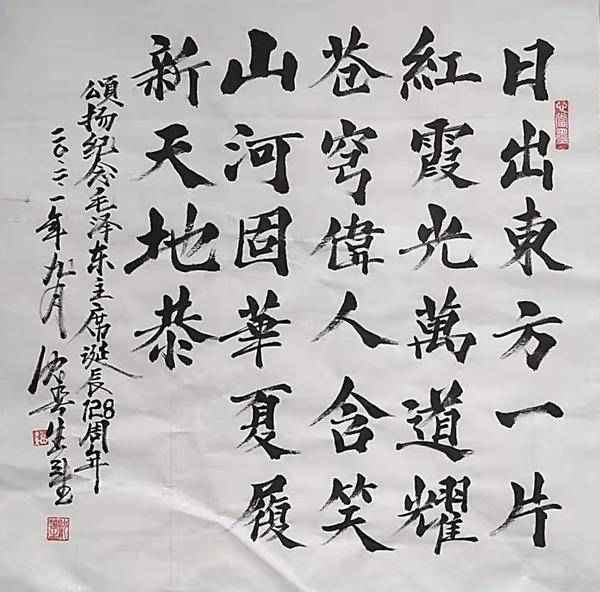 日出東方一片
紅霞光萬道耀
蒼穹偉人含笑
山河固華夏履
新天地恭
頌扬纪念毛泽东主席诞辰128周年
二〇二一年九月